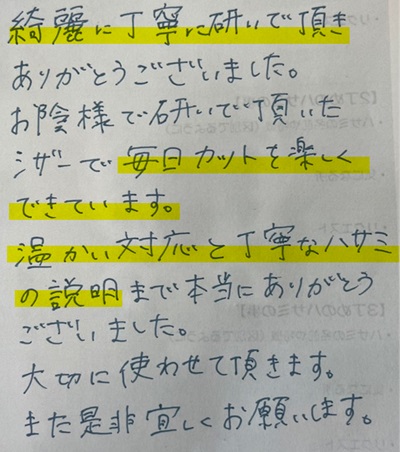 綺麗に丁寧に研いで頂き
ありがとうございました。
お陰様で研いで頂いた
シザーで毎日カットを楽しく
できています。
温かい対応と丁寧なハサミ
の説明まで本当にありがとう
ございました。
大切に使わせて頂きます。
また是非宜しくお願いします。